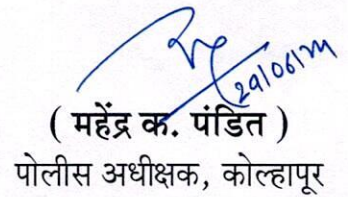 29/06/24
( महेंद्र क. पंडित )
पोलीस अधीक्षक, कोल्हापूर